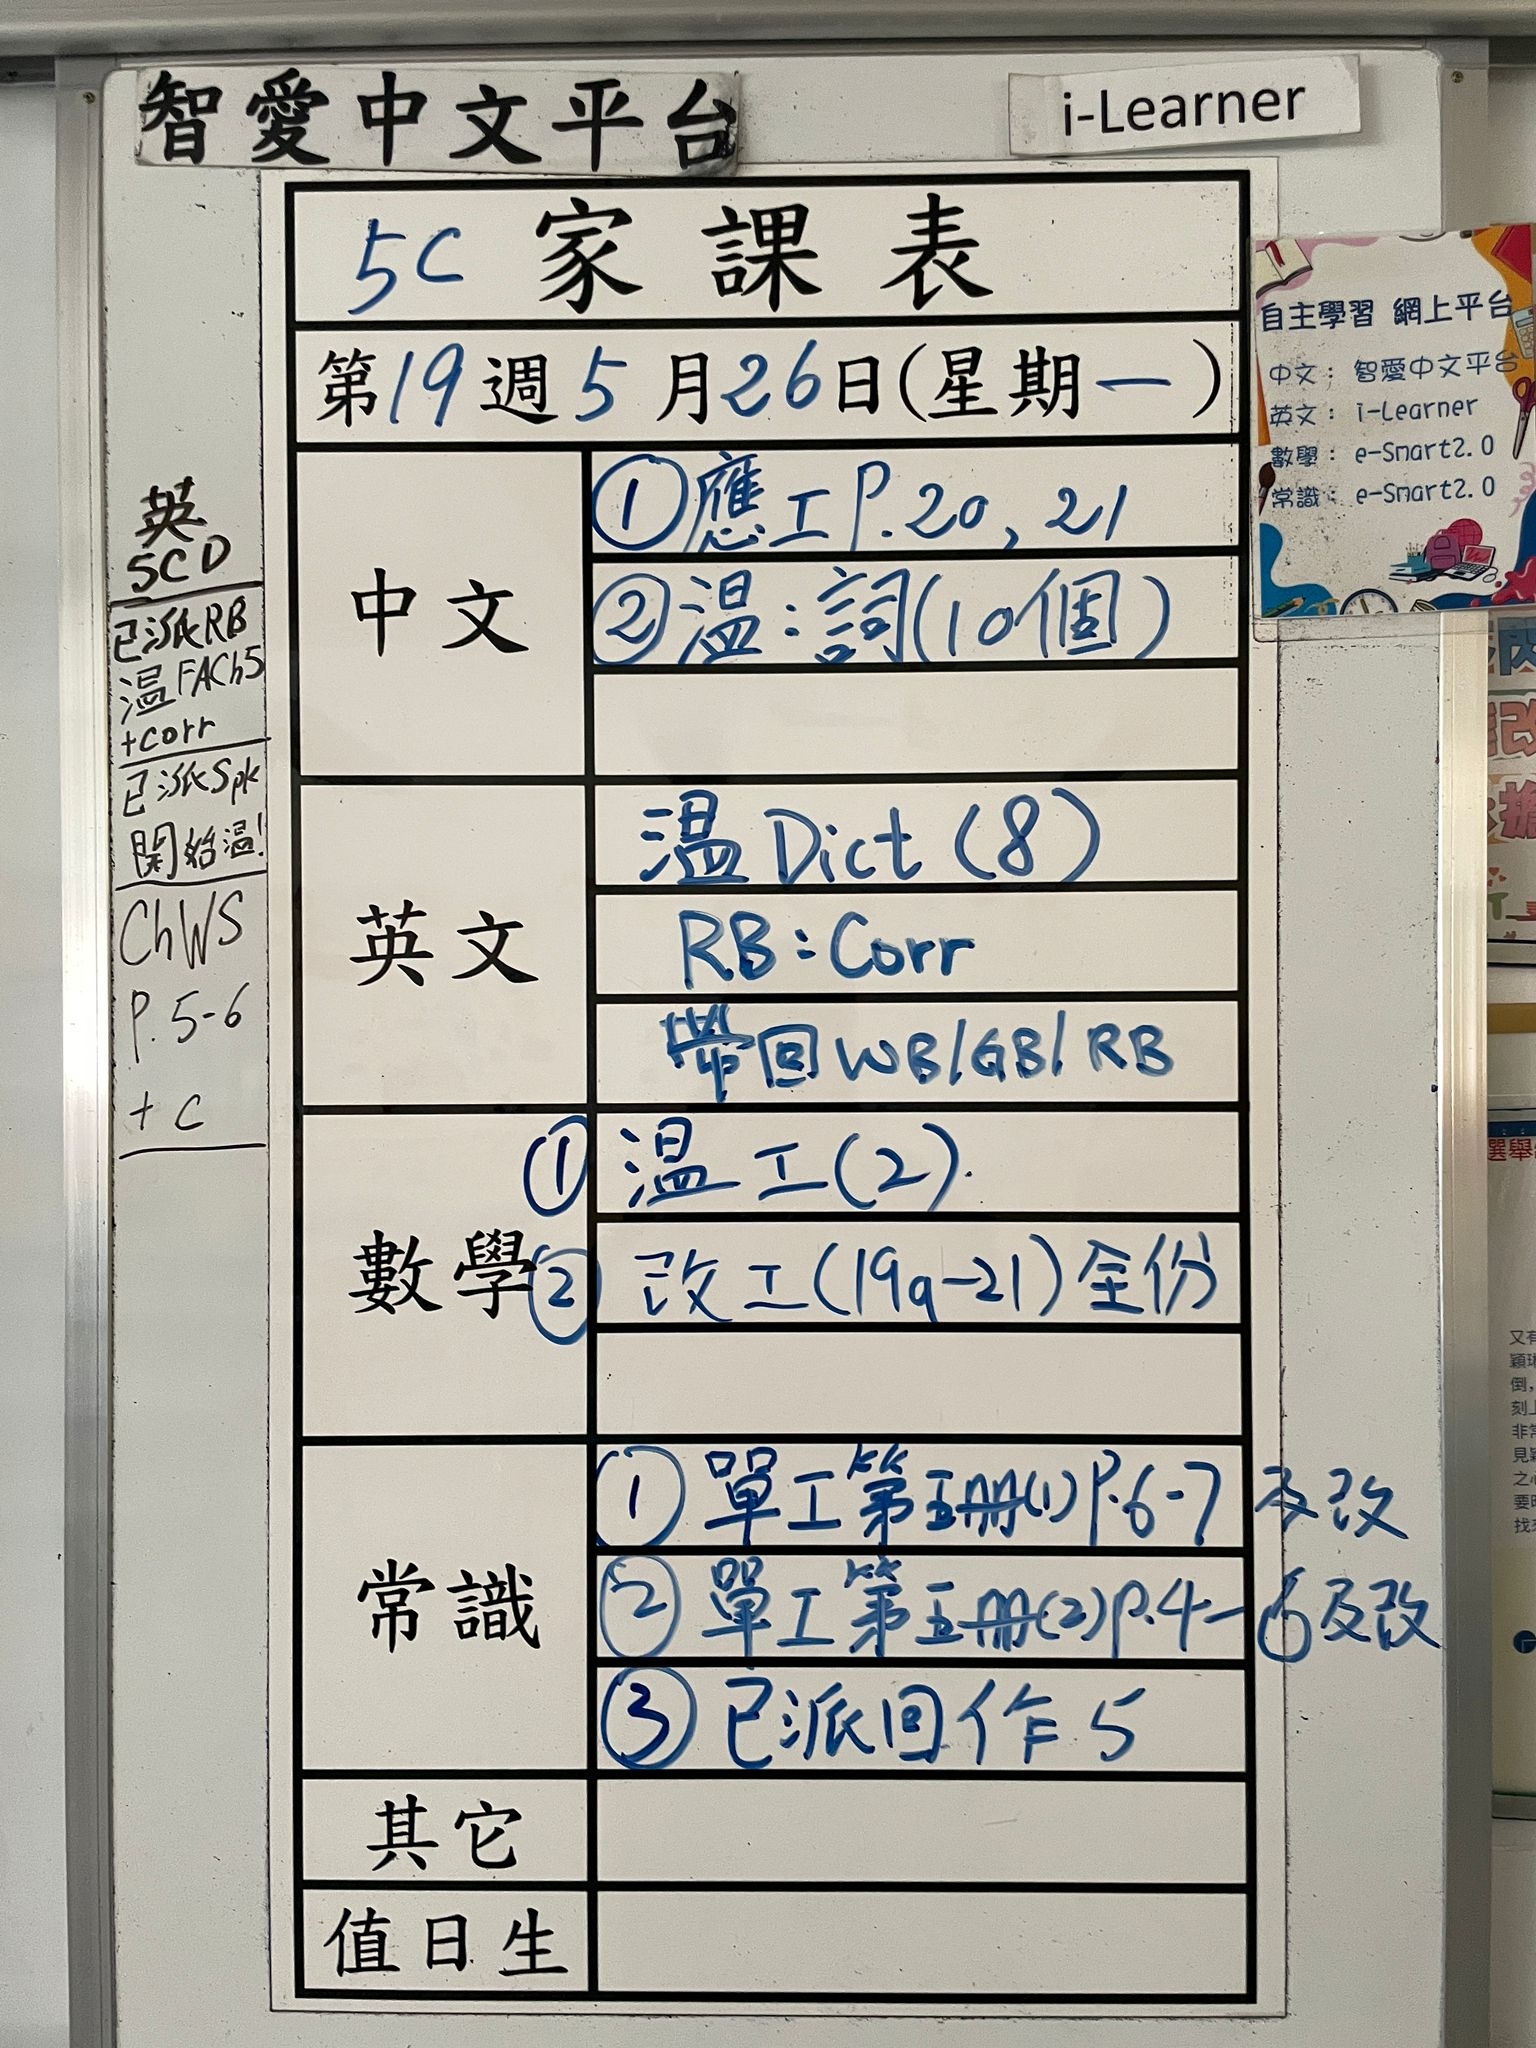 智愛中文平台
i-Learner
5C 家課表
第19週5月26日(星期一)
中文
①應工P.20, 21
②溫:詞(10個)
英文
溫Dict (8)
RB:Corr
帶回WB/GB/RB
數學
① 溫工(2).
② 改工(19a-21)全份
常識
① 單工第五冊(1)P.6-7及改
② 單工第五冊(2)P.4-6及改
③ 已派回作5
其它
值日生
英
5CD
已派RB
溫FACh5
+corr
已派Spk
開始溫!
ChWS
P.5-6
+ C
自主學習 網上平台
中文: 智愛中文平台
英文: i-Learner
數學: e-Smart2.0
常識: e-Smart2.0
選舉
又有
倒,
刻上
非常
之心